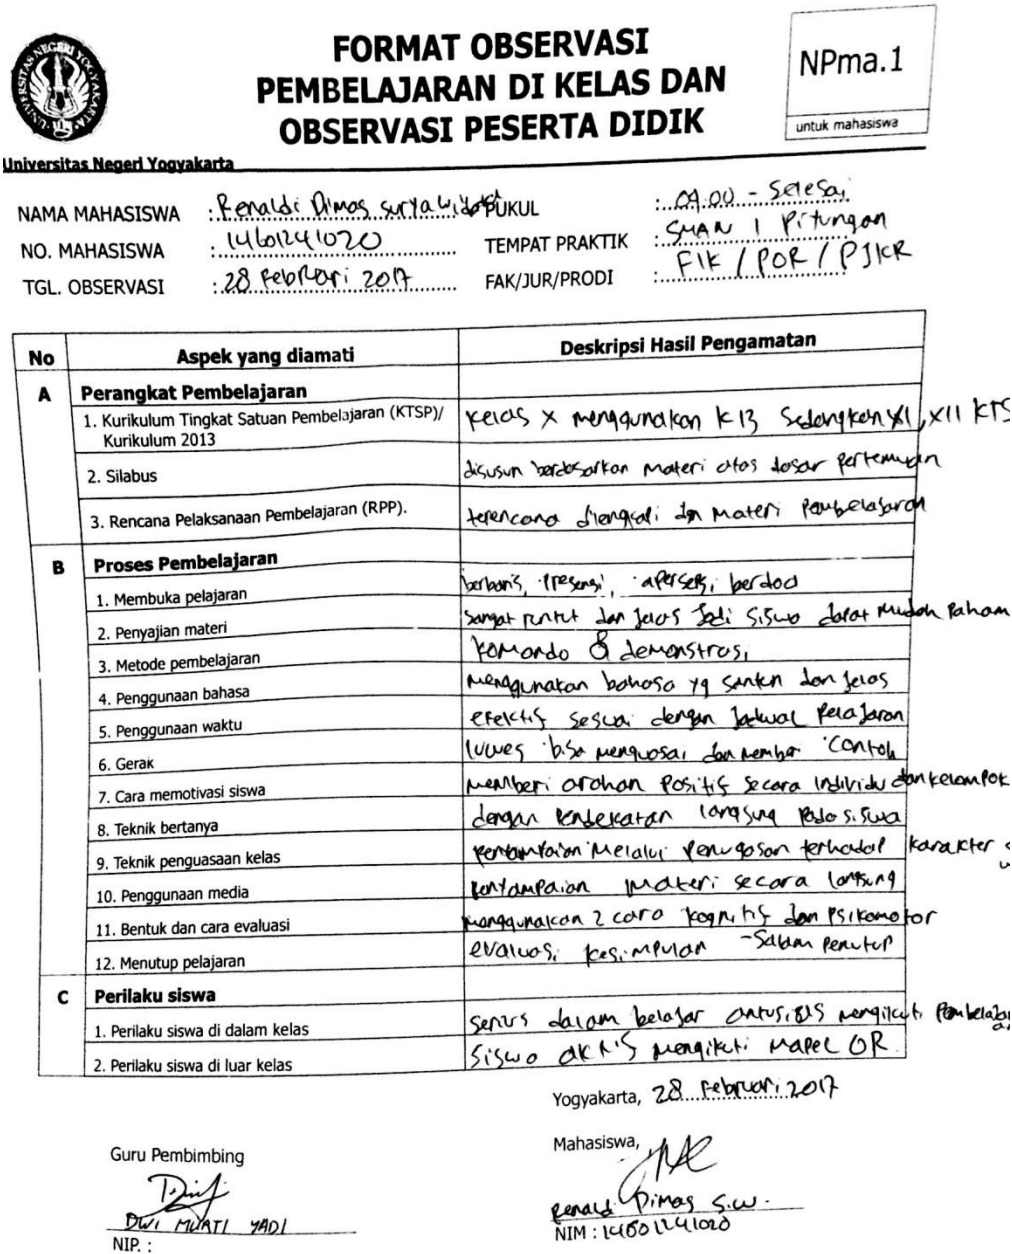 UNIVERSITAS NEGERI YOGYAKARTA
Universitas Negeri Yogyakarta
FORMAT OBSERVASI
PEMBELAJARAN DI KELAS DAN
OBSERVASI PESERTA DIDIK
NPma.1
untuk mahasiswa
NAMA MAHASISWA : Renaldi Dimas Surya PUKUL : 09.00 - Selesai
NO. MAHASISWA : 14601241020 TEMPAT PRAKTIK : SMAN 1 Pitungan
TGL. OBSERVASI : 28 Februari 2017 FAK/JUR/PRODI : FIK / POR / PJKR
No Aspek yang diamati Deskripsi Hasil Pengamatan
A Perangkat Pembelajaran
1. Kurikulum Tingkat Satuan Pembelajaran (KTSP)/ Kelas X menggunakan K13 Sedangkan XI, XII KTS
Kurikulum 2013
2. Silabus disusun berdasarkan materi atas dasar pertemuan
3. Rencana Pelaksanaan Pembelajaran (RPP). terencana dilengkapi dgn materi Pembelajaran
B Proses Pembelajaran
1. Membuka pelajaran berbaris, Presensi, apersepsi, berdoa
2. Penyajian materi Sangat runtut dan jelas Jadi Siswa dapat mudah Paham
3. Metode pembelajaran Komando & demonstrasi
4. Penggunaan bahasa menggunakan bahasa yg santun dan jelas
5. Penggunaan waktu efektif sesuai dengan Jadwal Pelajaran
6. Gerak luwes bisa menguasai dan memberi contoh
7. Cara memotivasi siswa memberi arahan Positif secara individu dan kelompok
8. Teknik bertanya dengan Pendekatan langsung Pada siswa
9. Teknik penguasaan kelas Penyampaian Melalui Penugasan terhadap karakter
10. Penggunaan media Penyampaian materi secara langsung
11. Bentuk dan cara evaluasi menggunakan 2 cara kognitif dan Psikomotor
12. Menutup pelajaran evaluasi kesimpulan - Salam Penutup
C Perilaku siswa
1. Perilaku siswa di dalam kelas Serius dalam belajar antusias mengikuti Pembelajaran
2. Perilaku siswa di luar kelas Siswa aktif mengikuti Mapel OR.
Yogyakarta, 28 Februari 2017
Guru Pembimbing Mahasiswa,
DWI MURTI YADI Renaldi Dimas S.W.
NIP. : NIM : 14601241020